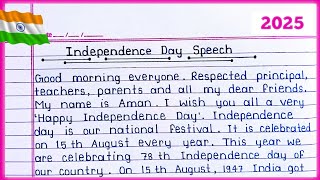 2025
Date
Independence Day Speech
Good morning everyone. Respected principal,
teachers, parents and all my dear friends.
My name is Aman. I wish you all a very
'Happy Independence Day'. Independence
day is our national festival. It is celebrated
on 15th August every year. This year we
are celebrating 78th Independence day of
our country. On 15th August, 1947 India got